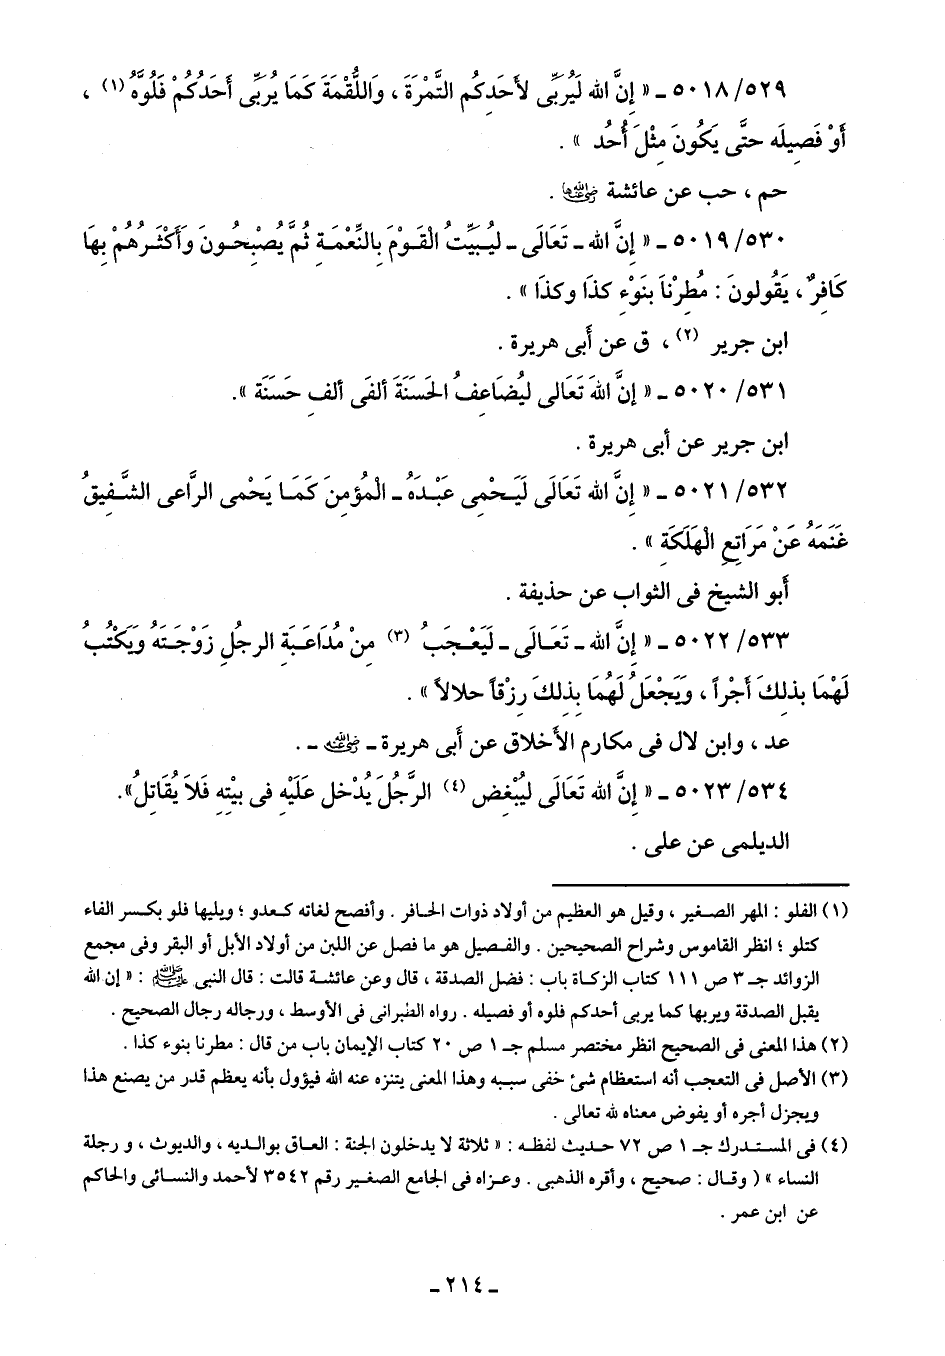 ٥٠١٨/٥٢٩ ـ « إِنَّ الله لَيُرَبِّى لأَحَدِكُم التَّمْرَةَ ، وَاللُّقْمَةَ كَمَا يُرَبِّى أَحَدُكُمْ فَلُوَّهُ (١) ،
أَوْ فَصِيلَه حتَّى يَكُونَ مِثْلَ أُحُد » .
حم ، حب عن عائشة رضي الله عنها .
٥٠١٩/٥٣٠ ـ « إِنَّ الله ـ تَعَالَى ـ ليُبَيِّتُ القَوْمَ بِالنِّعْمَةِ ثُمَّ يُصْبِحُونَ وَأَكْثَرُهُمْ بِهَا
كَافِرٌ ، يَقُولونَ : مُطِرْنَا بنَوْءِ كذَا وكذَا » .
ابن جرير (٢) ، ق عن أَبى هريرة .
٥٠٢٠/٥٣١ ـ « إنَّ اللهَ تَعَالى ليُضَاعِفُ الحَسَنَةَ ألفَى ألفِ حَسَنَة ».
ابن جرير عن أبى هريرة .
٥٠٢١/٥٣٢ ـ « إِنَّ الله تَعَالَى لَيَحْمِى عبْدَهُ ـ الْمُؤمِنَ كَمَا يَحْمِى الرَّاعِى الشَّفِيقُ
غَنَمَهُ عَنْ مَرَاتِعِ الْهَلَكَةِ » .
أَبو الشيخ فى الثواب عن حذيفة .
٥٠٢٢/٥٣٣ ـ « إِنَّ الله ـ تَعَالَى ـ لَيَعْجَبُ (٣) مِنْ مُدَاعَبَةِ الرجلِ زَوْجَتَهُ وَيَكْتُبُ
لَهُمَا بذلكَ أَجْراً ، وَيَجْعَلُ لَهُمَا بِذلكَ رِزْقاً حلالاً » .
عد ، وابن لال فى مكارم الأخلاق عن أَبى هريرة ـ رضي الله عنه ـ .
٥٠٢٣/٥٣٤ ـ « إِنَّ الله تَعَالَى ليُبْغِض (٤) الرَّجُلَ يُدْخل عَلَيْهِ فى بيْتِهِ فَلاَ يُقَاتلُ».
الديلمى عن على .
(١) الفلو : المهر الصغير ، وقيل هو العظيم من أولاد ذوات الحافر . وأفصح لغاته كعدو ؛ ويليها فلو بكسر الفاء
كتلو ؛ انظر القاموس وشراح الصحيحين . والفصيل هو ما فصل عن اللبن من أولاد الأبل أو البقر وفى مجمع
الزوائد جـ ٣ ص ١١١ كتاب الزكاة باب : فضل الصدقة ، قال وعن عائشة قالت : قال النبى ﷺ : « إن الله
يقبل الصدقة ويربها كما يربى أحدكم فلوه أو فصيله . رواه الطبرانى فى الأوسط ، ورجاله رجال الصحيح .
(٢) هذا المعنى فى الصحيح انظر مختصر مسلم جـ ١ ص ٢٠ كتاب الإيمان باب من قال : مطرنا بنوء كذا .
(٣) الأصل فى التعجب أنه استعظام شئ خفى سببه وهذا المعنى يتنزه عنه الله فيؤول بأنه يعظم قدر من يصنع هذا
ويجزل أجره أو يفوض معناه لله تعالى .
(٤) فى المستدرك جـ ١ ص ٧٢ حديث لفظه : « ثلاثة لا يدخلون الجنة : العاق بوالديه ، والديوث ، و رجلة
النساء » ( وقال : صحيح ، وأقره الذهبى . وعزاه فى الجامع الصغير رقم ٣٥٤٢ لأحمد والنسائى والحاكم
عن ابن عمر .
ـ ٢١٤ ـ